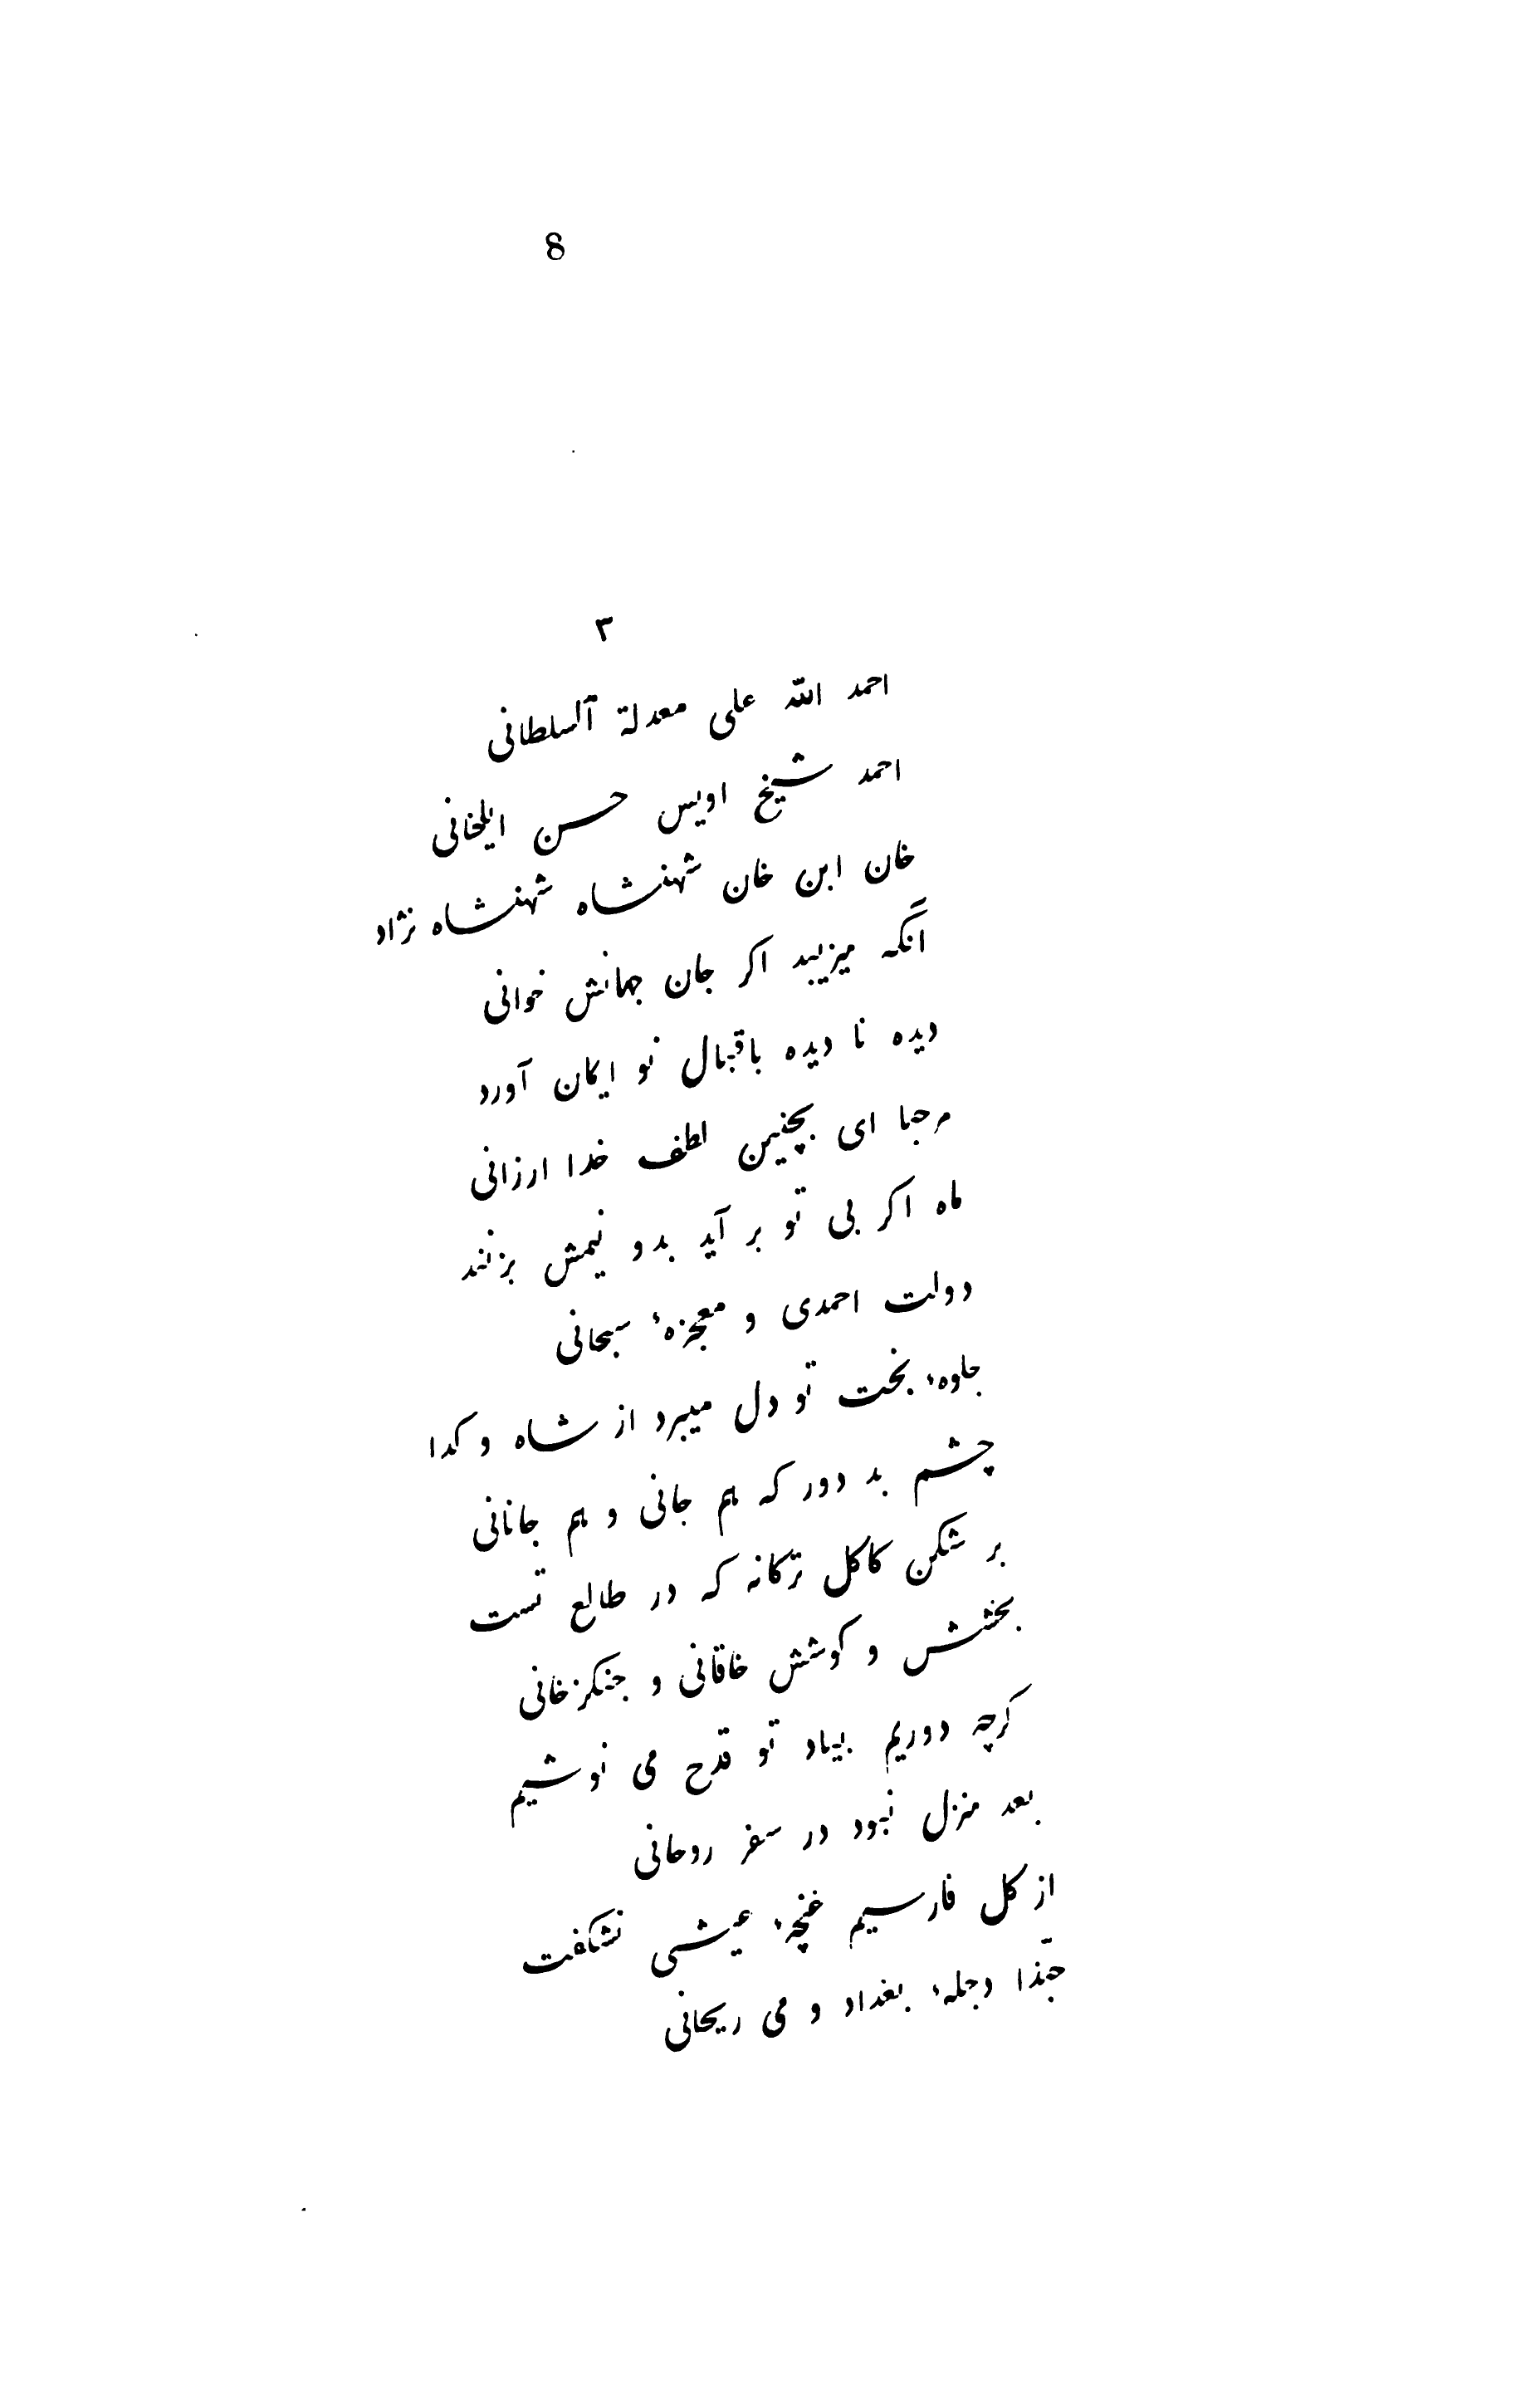 8
٣
احمد الله علی معدلة آلسلطانی
احمد شیخ اویس حسن ایلخانی
خان ابن خان شهنشاه شهنشاه نژاد
آنگه میزیبد اکر جان جهانش خوانی
دیده نا دیده باقبال تو ایمان آورد
مرحبا ای بچنین لطف خدا ارزانی
ماه اکر بی تو بر آید بدو نیمش بزنند
دولت احمدی و معجزهٔ سبحانی
جلوهٔ بخت تو دل میبرد از شاه و کدا
چشم بد دور که هم جانی و هم جانانی
بر شکن کاکل ترکانه که در طالع تست
بخشش و کوشش خاقانی و چنکزخانی
کرچه دوریم بیاد تو قدح می نوشیم
بعد منزل نبود در سفر روحانی
از کل فارسیم غنچهٔ عیشی نشکفت
حبّذا دجلهٔ بغداد و می ریحانی